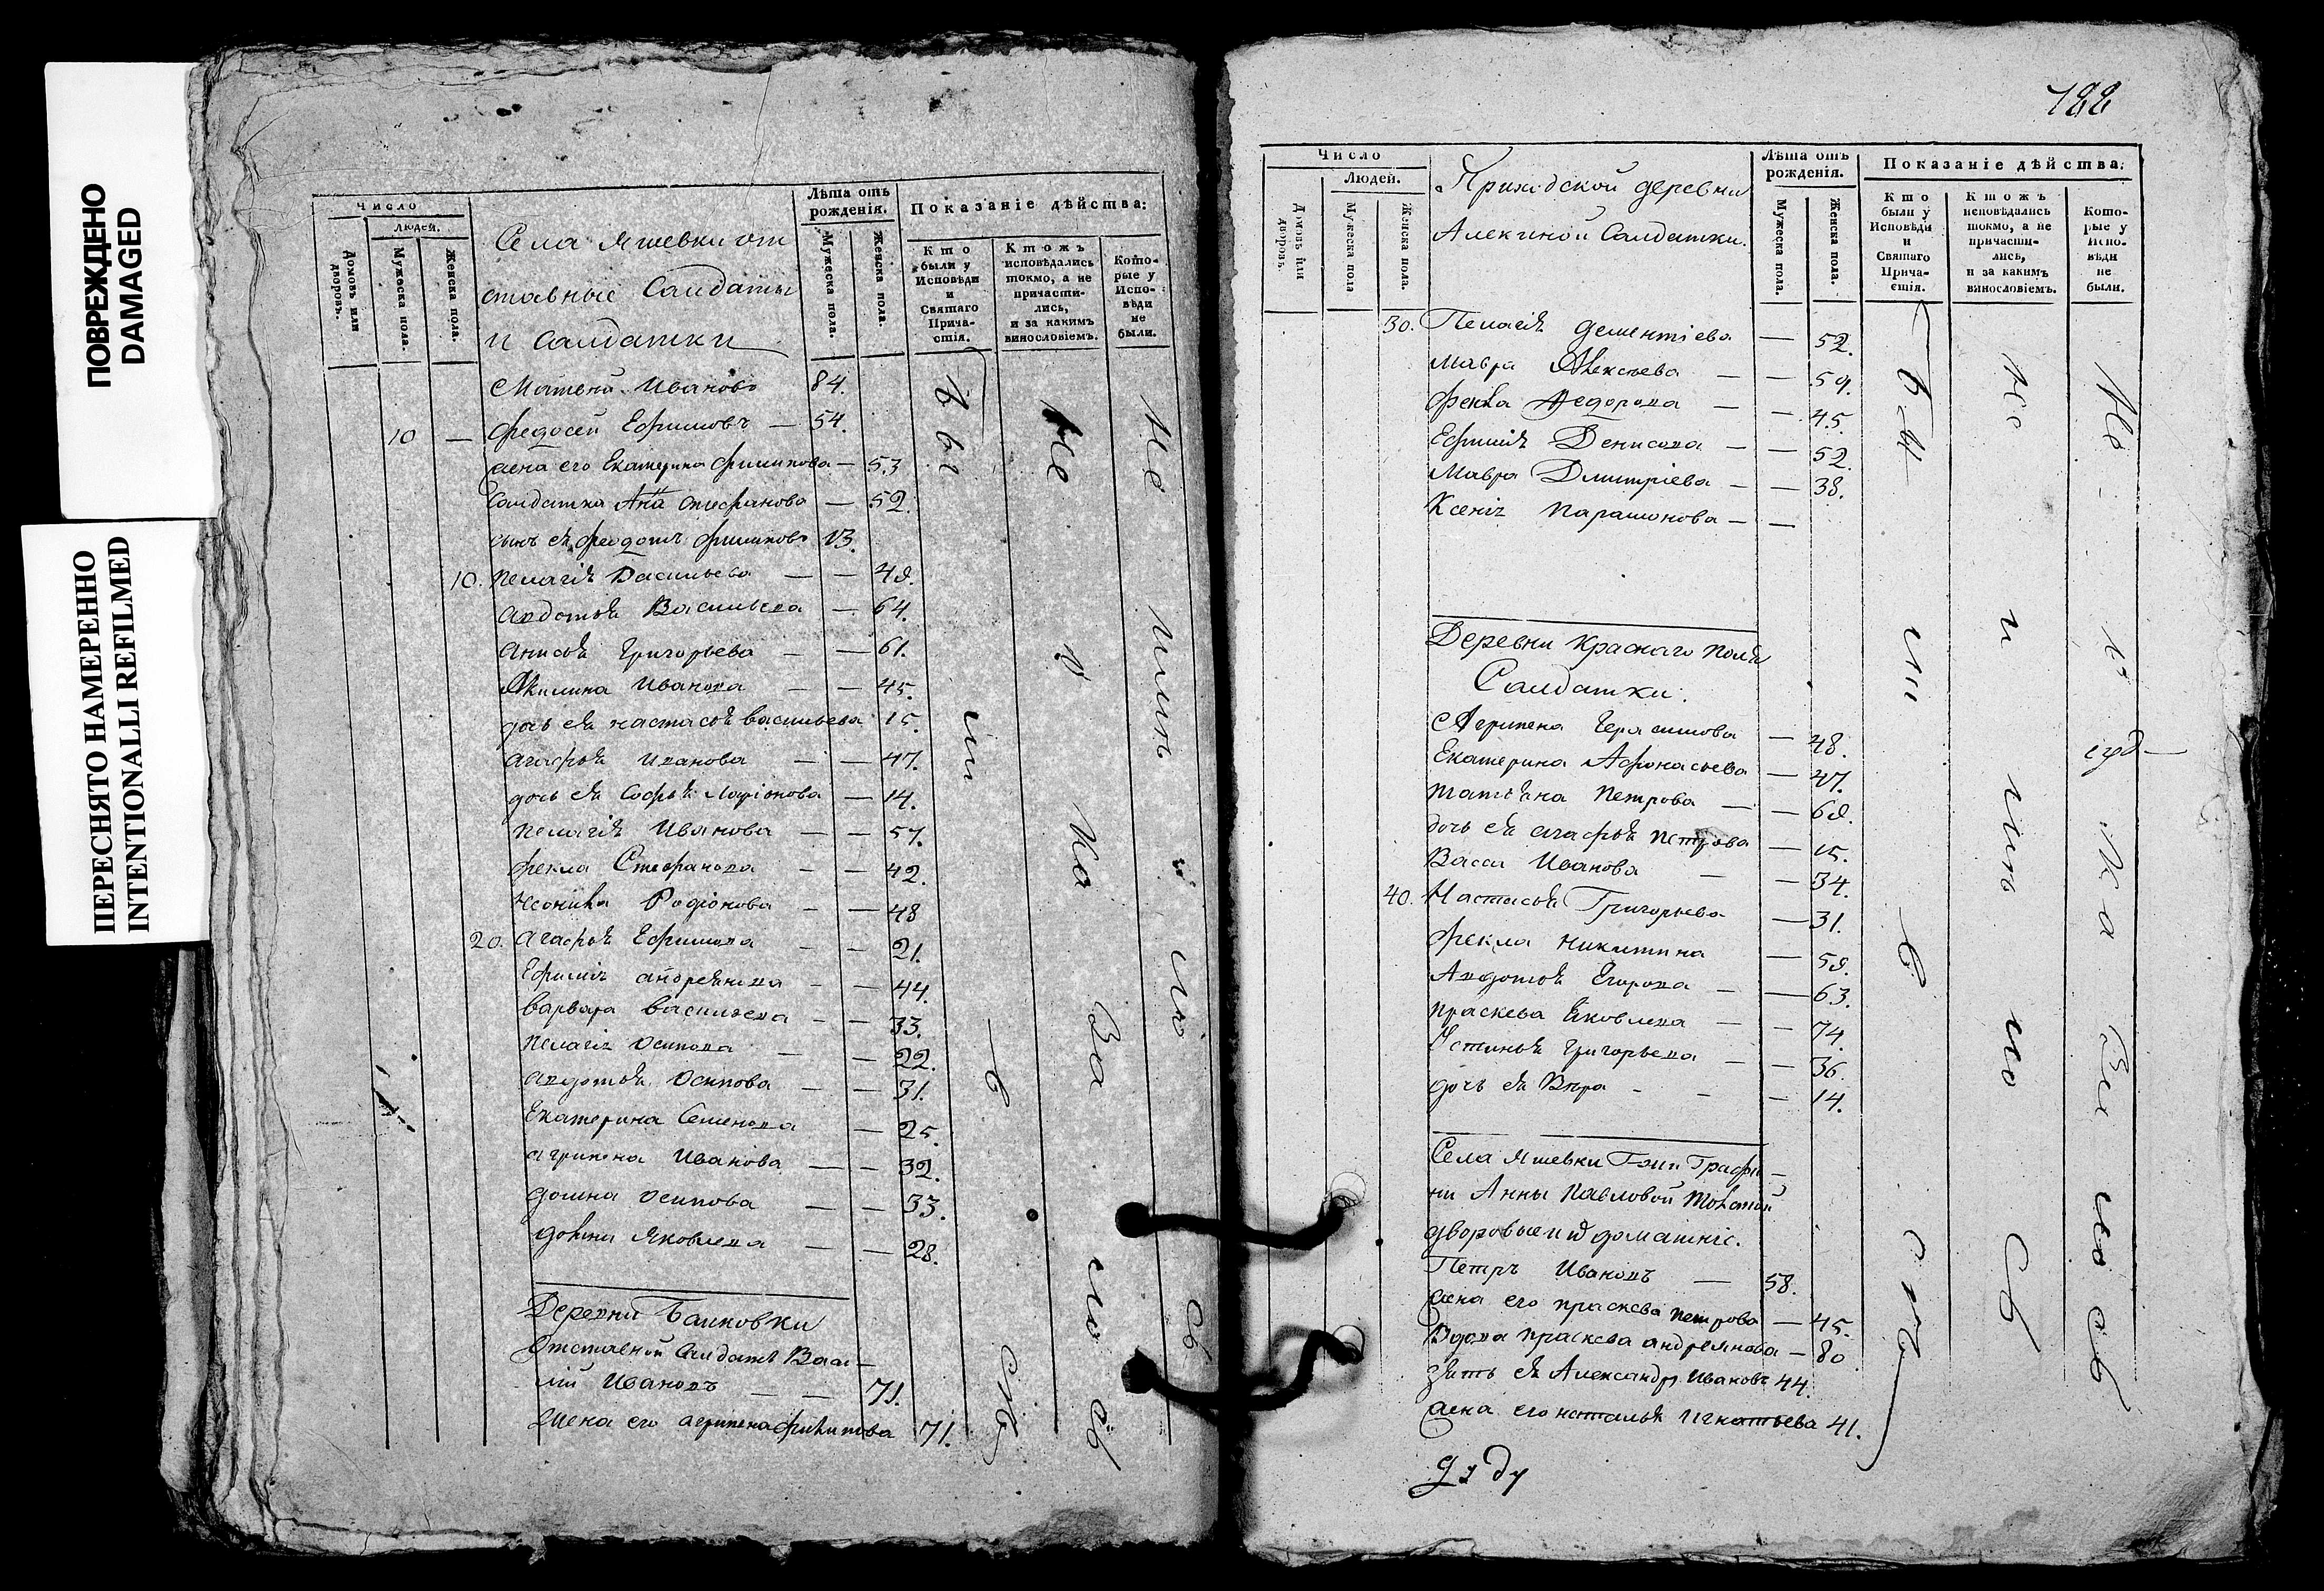 ПОВРЕЖДЕНО
DAMAGED
ПЕРЕСНЯТО НАМЕРЕННО
INTENTIONALLI REFILMED
Число
Людей.
Домовъ или дворовъ.
Мужеска пола.
Женска пола.
Села Яшевки от
ставные Салдаты
и Салдатки
Лѣта отъ рожденія.
Мужеска пола.
Женска пола.
Показаніе дѣйства:
Кто были у Исповѣди и Святаго Прича-стія.
Ктожъ исповѣдались токмо, а не причасти-лись, и за какимъ винословіемъ.
Кото-рые у Испо-вѣди не были.
Матвей Ивановъ 84.
10 — Федосей Ефимовъ — 54.
жена его Екатерина Филипова — 53
Салдатка Анна Стефанова — 52.
сынъ ея Феодотъ Филиповъ 13.
10. Пелагія Васильева — — 48.
Авдотья Васильева — 64.
Анисья Григорьева — — 61.
Акилина Иванова — — 45.
дочь ея Настасья Васильева 15.
Агафья Иванова — — 47.
дочь ея Софья Ларіонова — 14.
Пелагія Иванова — — 57.
Фекла Стефанова — — 42.
Родіонова — — 48
20. Агафья Ефимова — — 21.
Ефимія Андреянова — — 44.
Варвара Васильева — — 33.
Пелагія Осипова — — 22.
Авдотья Осипова — — 31.
Екатерина Семенова — 25.
Агрипена Иванова — — 32.
Домна Осипова — — 33.
Яковлева — — 28.
Деревни
Отставной Салдатъ Васи-
лій Ивановъ — — 71.
Жена его Агрипена Филипова 71.
Бы
ли
в
сѣ
Не
и
ка
за
но
об
Не
122
Число
Людей.
Домовъ или дворовъ.
Мужеска пола
Женска пола.
Приходской деревни
Алекиной Салдатки.
Лѣта отъ рожденія.
Мужеска пола.
Женска пола.
Показаніе дѣйства:
Кто были у Исповѣди и Святаго Прича-стія.
Ктожъ исповѣдались токмо, а не причасти-лись, и за какимъ винословіемъ.
Кото-рые у Испо-вѣди не были.
30. Пелагія Дементіева — 52.
Мавра Алексѣева — — 59.
Фекла Федорова — — 45.
Ефимія Денисова — — 52.
Мавра Дмитріева — — 38.
Ксенія Парамонова — —
Деревни Краснаго Поля
Салдатки.
Агрипена Герасимова — 48.
Екатерина Афонасьева — 47.
Татьяна Петрова — — 68.
дочь ея Агафья Петрова — 15.
Васса Иванова — — 34.
40. Настасья Григорьева — 31.
Фекла Никитина — 58.
Авдотья Егорова — — 63.
Праскева Яковлева — — 74.
Устинья Григорьева — — 36.
дочь ея Вѣра — — — 14.
Села Яшевки Г-жи Графи-
ни Анны Павловой Толстой
дворовые и домашніе.
Петръ Ивановъ — 58.
жена его Праскева Петрова — 45.
Вдова Праскева Андреянова — 80
зять ея Александръ Ивановъ 44.
жена его Наталья Игнатьева 41.